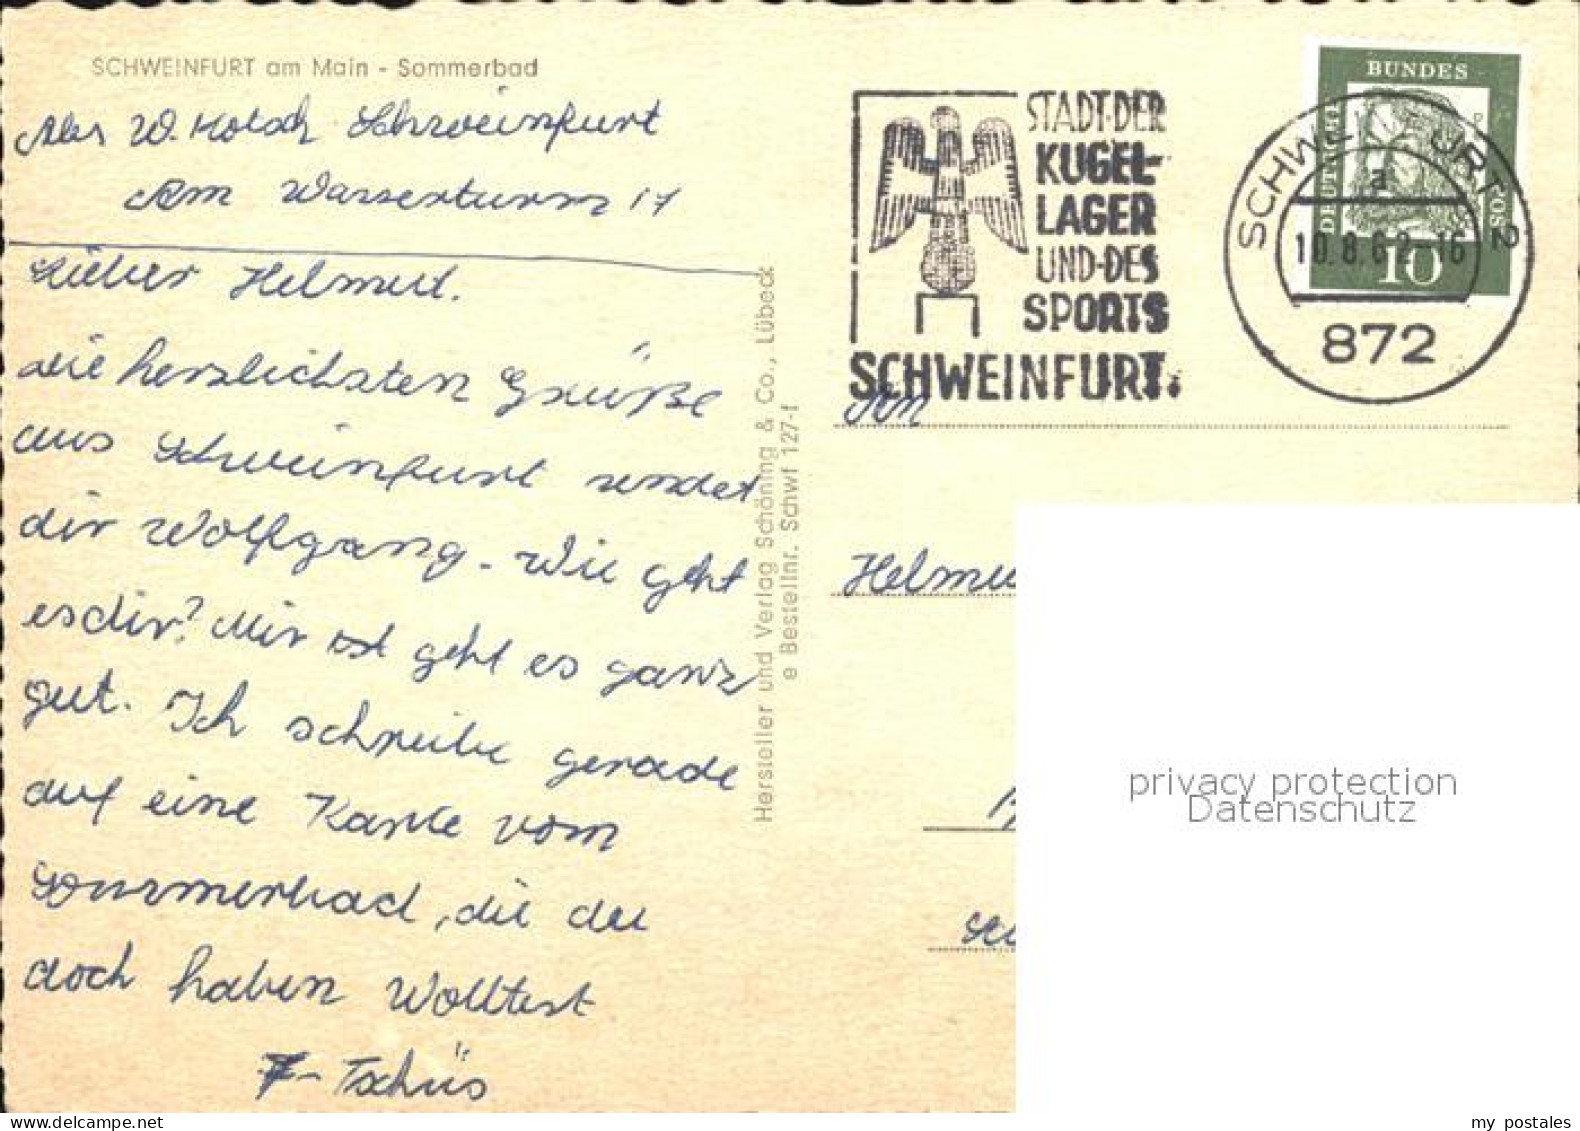 SCHWEINFURT am Main - Sommerbad
Abs W. Kotsch Schweinfurt
Am Wasserturm 17
Lieber Helmut.
die herzlichsten Grüße
aus Schweinfurt sendet
dir Wolfgang. Wie geht
es dir? Mir ist geht es ganz
gut. Ich schreibe gerade
auf eine Karte vom
Sommerbad, die du
doch haben Wolltest
- Tschüs
Hersteller und Verlag Schöning & Co., Lübeck
e Bestellnr. Schwf 127-f
STADT·DER
KUGEL-
LAGER
UND·DES
SPORTS
SCHWEINFURT.
DEUTSCHE
BUNDES
POST
10
SCHWEINFURT 2
a
10.8.62-16
872
An
Helmu
privacy protection
Datenschutz
my postales